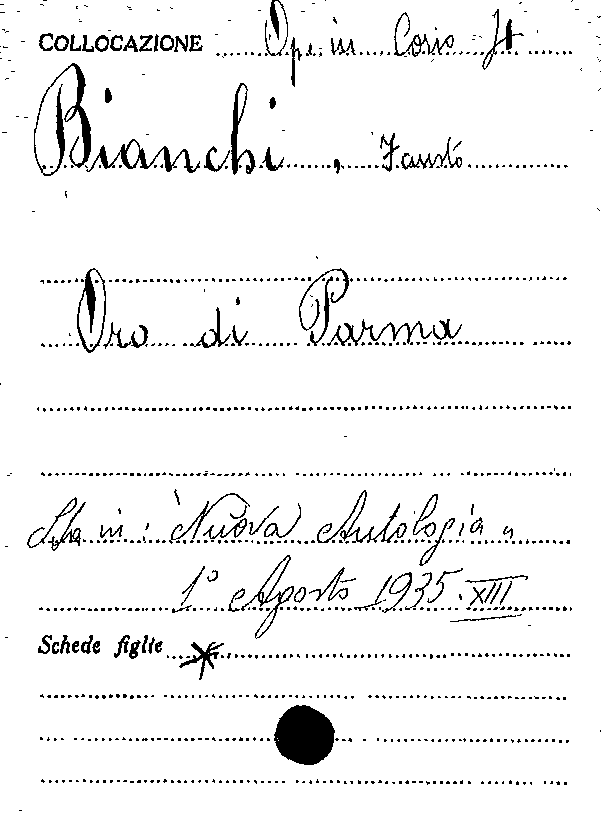 COLLOCAZIONE Op. in Corso
Bianchi, Fausto
Oro di Parma
Sta in: "Nuova Autologia"
1° Agosto 1935. XIII
Schede figlie *